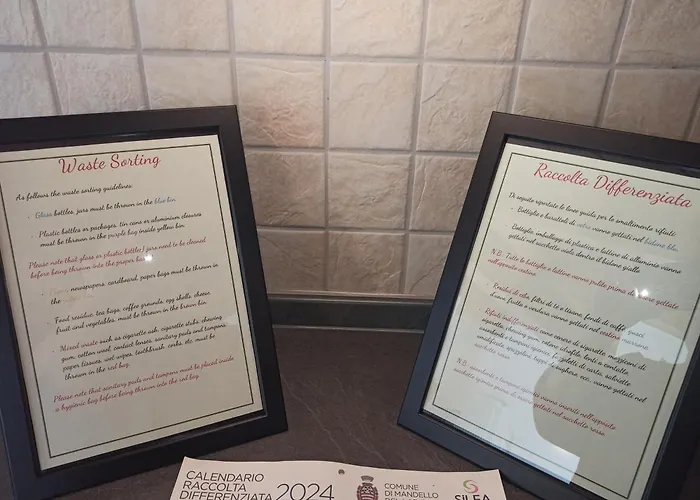 Waste Sorting
As follows the waste sorting guidelines:
- Glass bottles, jars must be thrown in the blue bin
- Plastic bottles or packages, tin cans or aluminium classics
must be thrown in the purple bag inside yellow bin
Please note that glass or plastic bottle/ jars need to be cleaned
before being thrown into the proper
newspapers, cardboard, paper bags must be thrown in
the
- Food residue, tea bags, coffee grounds, egg shells, cheese
fruit and vegetables, must be thrown in the brown bin
- Mixed waste such as cigarette ash, cigarette stubs, chewing
gum, cotton wool, contact lenses, sanitary pads and tampons,
paper tissues, wet wipes, toothbrush, corks, etc. must be
thrown in the red bag.
Please note that sanitary pads and tampons must be placed inside
a hygienic bag before being thrown into the red bag.
Raccolta Differenziata
Di seguito riportate le linee guida per lo smaltimento rifiuti:
- Bottiglie e barattoli di vetro vanno gettati nel bidone blu
- Bottiglie, imballaggi di plastica e lattine di alluminio vanno
gettati nel sacchetto viola dentro il bidone giallo
N.B. Tutte le bottiglie e lattine vanno pulite prima di essere gettate
nell'apposito
- Residui di cibo, filtri di tè e tisane, fondi di caffè, gusci
d'uovo, frutta e verdura vanno gettati nel marrone
- Rifiuti indifferenziati come cenere di sigarette, mozziconi di
sigarette, chewing gum, cotone idrofilo, lenti a contatto,
assorbenti e tamponi igienici, fazzoletti di carta, salviette
umidificate, spazzolini, tappi di sughero, ecc. vanno gettati nel
sacchetto rosso.
N.B. assorbenti e tamponi igienici vanno inseriti nell'apposito
sacchetto igienico prima di essere gettati nel sacchetto rosso.
CALENDARIO
RACCOLTA
DIFFERENZIATA 2024
COMUNE
DI MANDELLO
SILEA